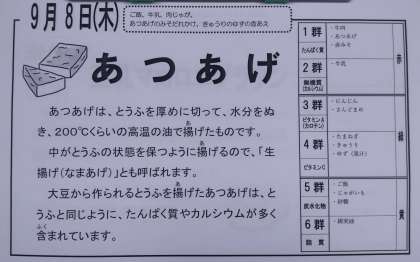 9月8日(木)
ご飯、牛乳、肉じゃが、
あつあげのみそだれかけ、きゅうりのゆずの香あえ
あつあげ
あつあげは、とうふを厚めに切って、水分をぬ
き、200℃くらいの高温の油で揚げたものです。
中がとうふの状態を保つように揚げるので、「生
揚げ(なまあげ)」とも呼ばれます。
大豆から作られるとうふを揚げたあつあげは、と
うふと同じように、たんぱく質やカルシウムが多く
含まれています。
1群
たんぱく質
・牛肉
・あつあげ
・赤みそ
2群
無機質
(カルシウム)
・牛乳
赤
3群
ビタミンA
(カロテン)
・にんじん
・さんどまめ
4群
ビタミンC
・たまねぎ
・きゅうり
・ゆず(果汁)
緑
5群
炭水化物
・ご飯
・じゃがいも
・砂糖
6群
脂質
・綿実油
黄